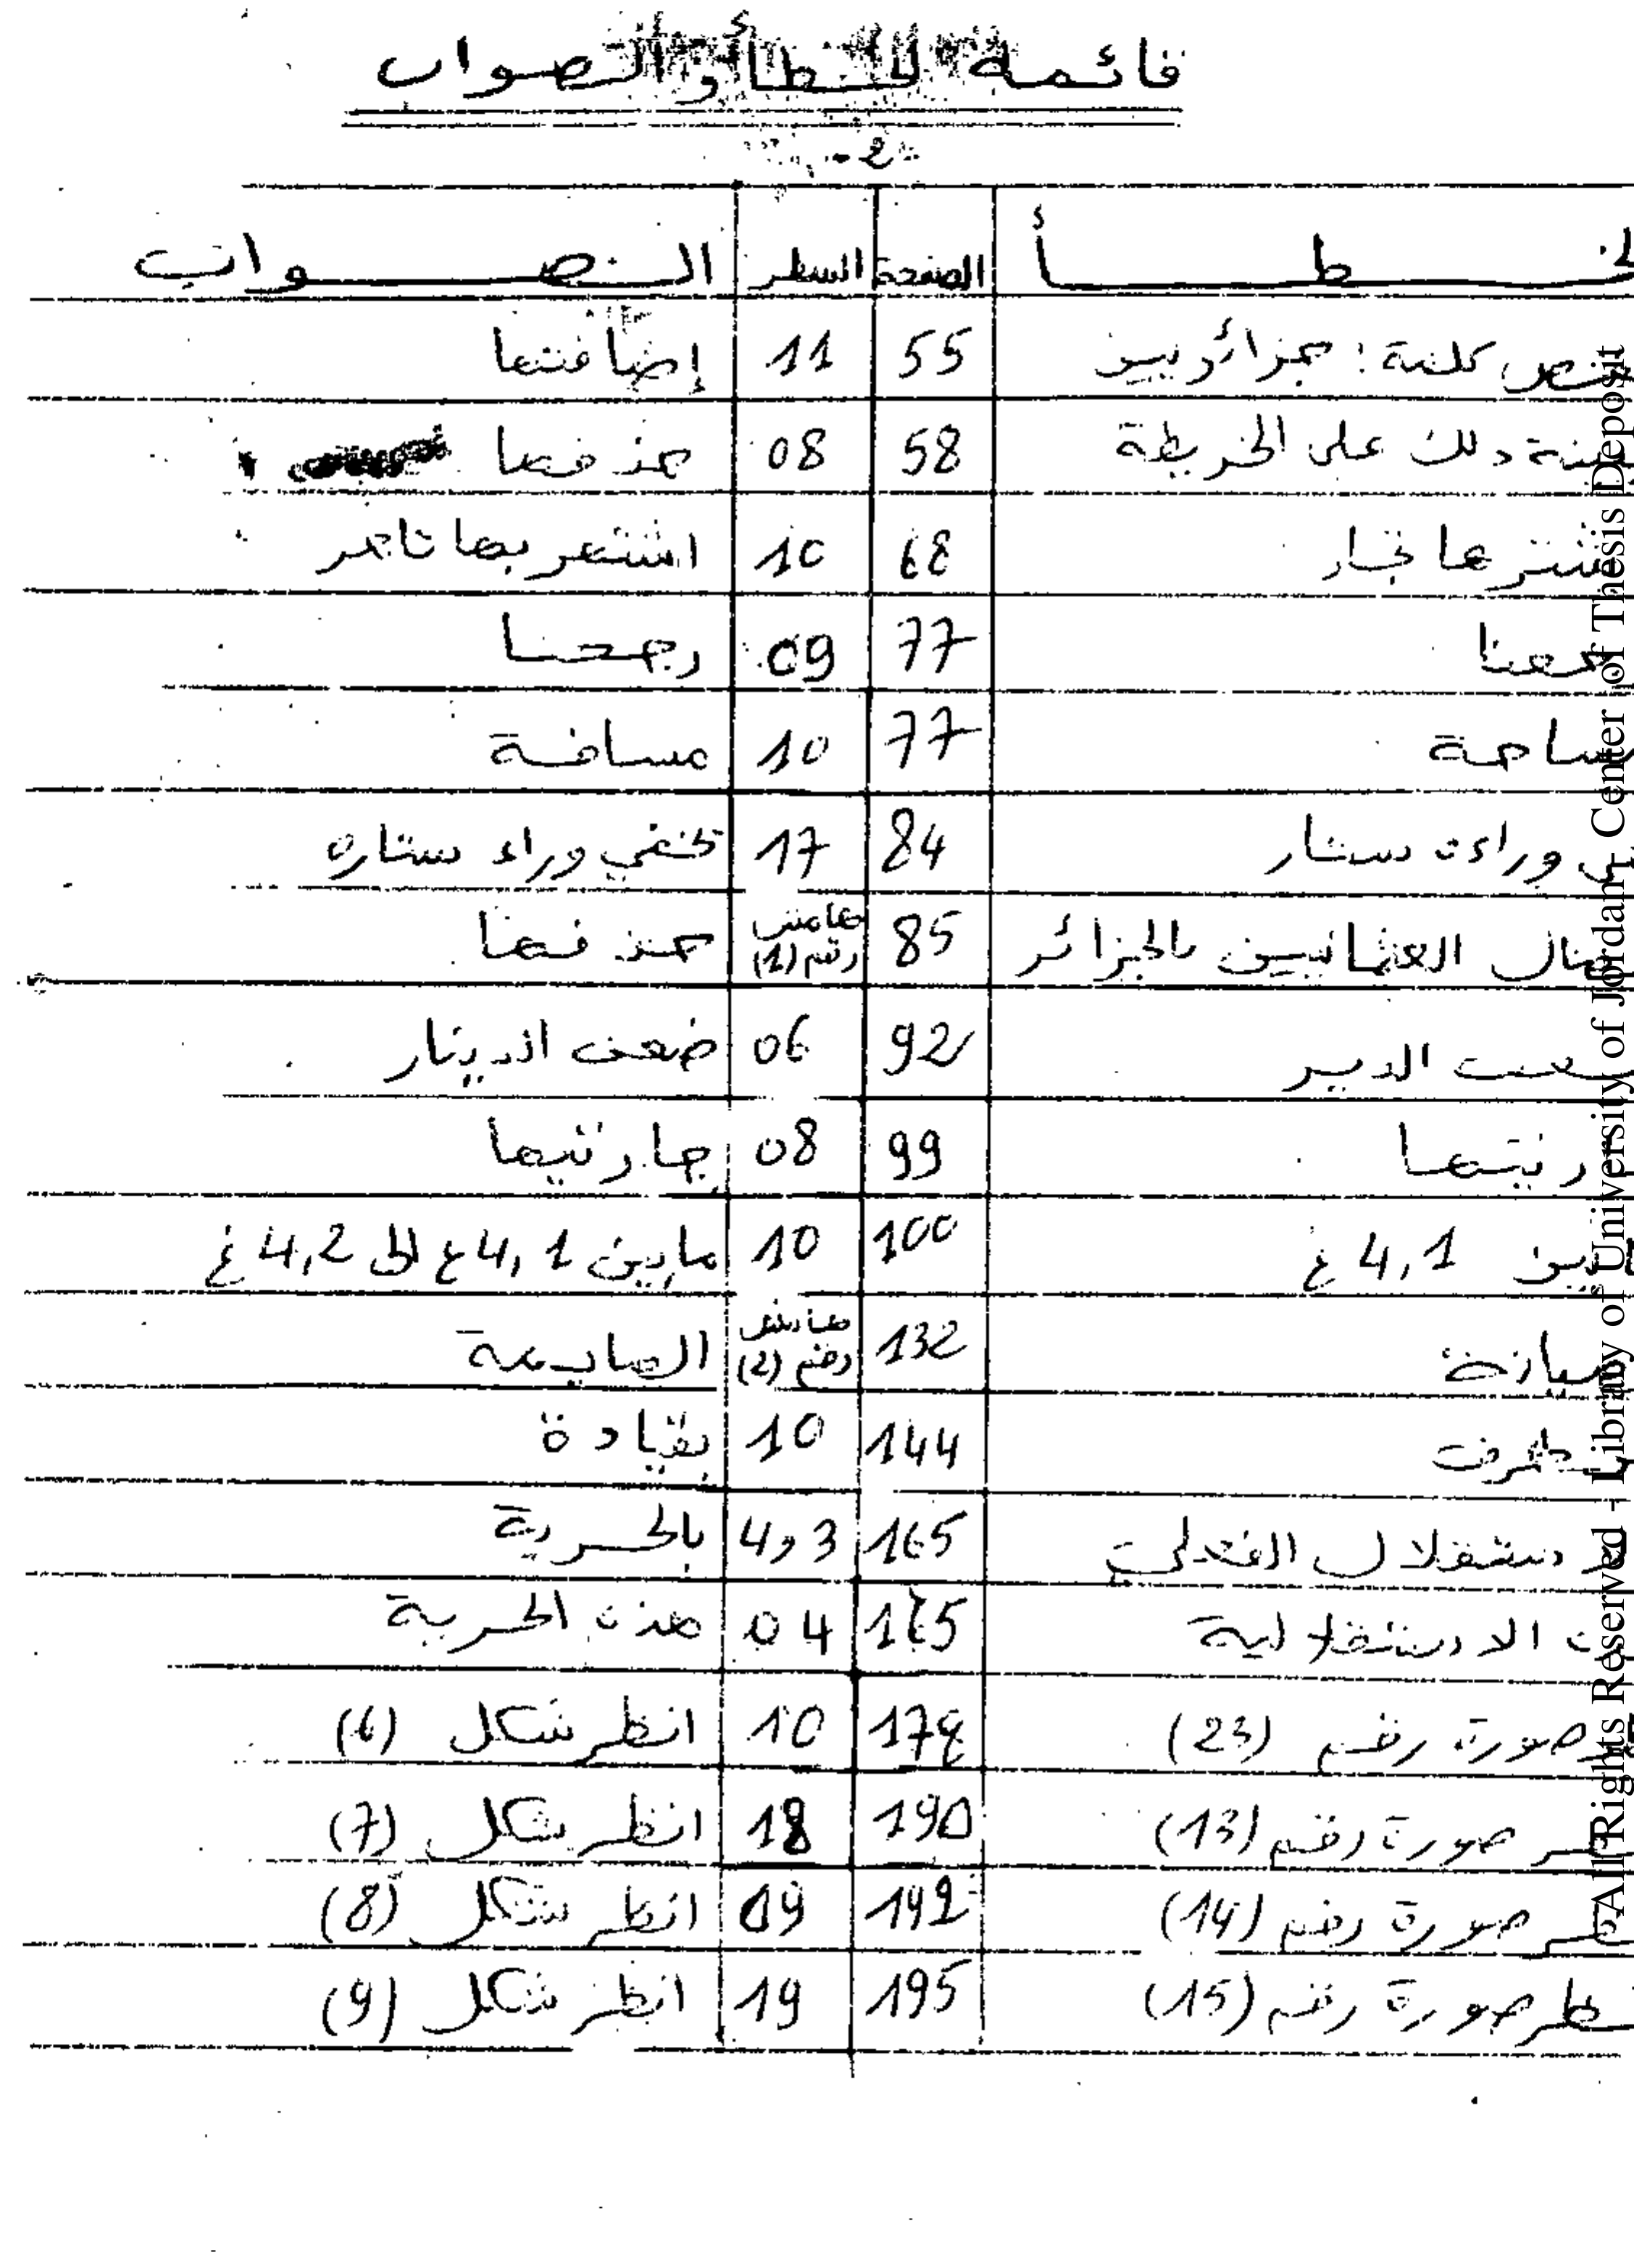 قائمة الخطأ والصواب
- 2 -
الخطأ الصفحة السطر الصواب
كلمة: جزائريين 55 11 إضافتها
ذلك على الخريطة 58 08 حذفها
68 10 اشتهر بها تاهر
77 09 رجعنا
مساحة 77 10 مسافة
وراءه ستار 84 17 تختفي وراء ستاره
العثمانيين بالجزائر 85 هامش رقم (1) حذفها
الدير 92 06 ضعف الدينار
99 08 جارتيها
4,1 غ 100 10 ما بين 4,1 غ إلى 4,2 غ
132 هامش رقم (2)
طرف 144 10 بقيادة
الاستقلال الفعلي 165 3 و 4 بالحرية
الاستقلالية 165 04 هذه الحرية
صورة رقم (23) 178 10 انظر شكل (6)
صورة رقم (13) 190 18 انظر شكل (7)
صورة رقم (14) 192 09 انظر شكل (8)
انظر صورة رقم (15) 195 19 انظر شكل (9)
All Rights Reserved - Library of University of Jordan - Center of Thesis Deposit